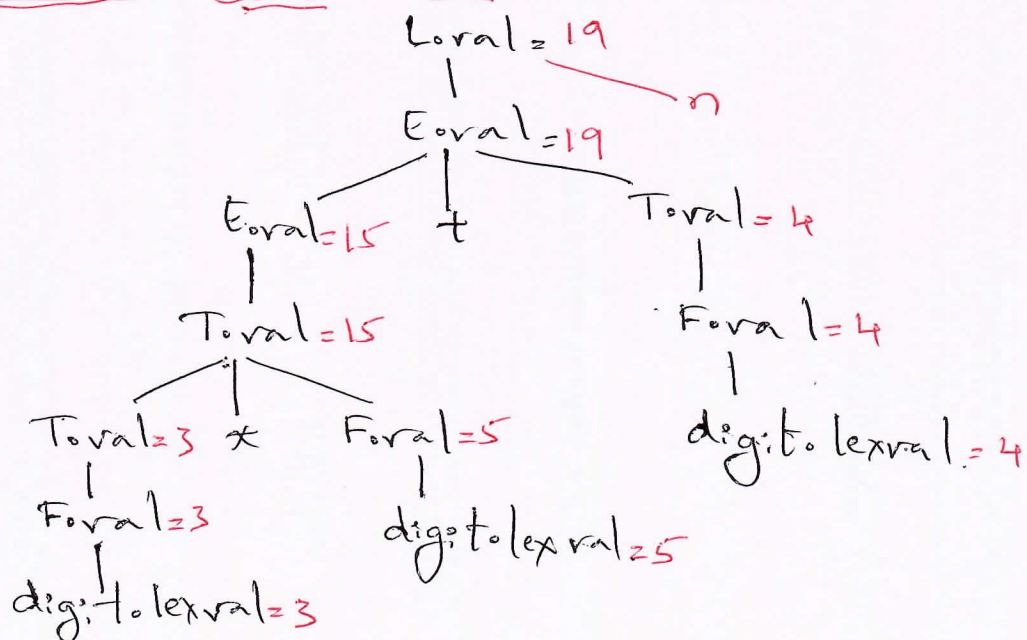 L.val = 19
n
E.val = 19
E.val = 15 + T.val = 4
T.val = 15 F.val = 4
T.val = 3 * F.val = 5 digit.lexval = 4
F.val = 3 digit.lexval = 5
digit.lexval = 3